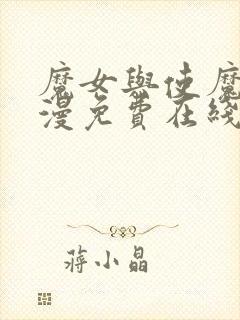 魔女與使魔
漫免費在綫
蔣小晶